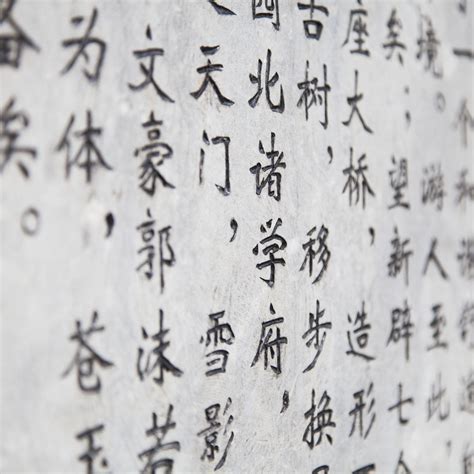 一个和谐舒适
境。游人至此，
矣；望新辟七
座大桥，造形
古树，移步换
北诸学府，
天门，雪影
文豪郭沫若
为体，苍玉
备矣。